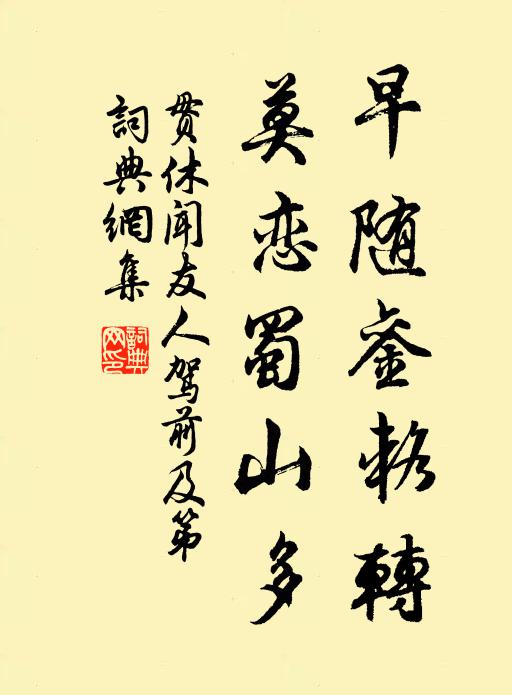 早随銮辂轉
莫恋蜀山多
贯休闻友人駕前及第
詞典網集
詞典网印